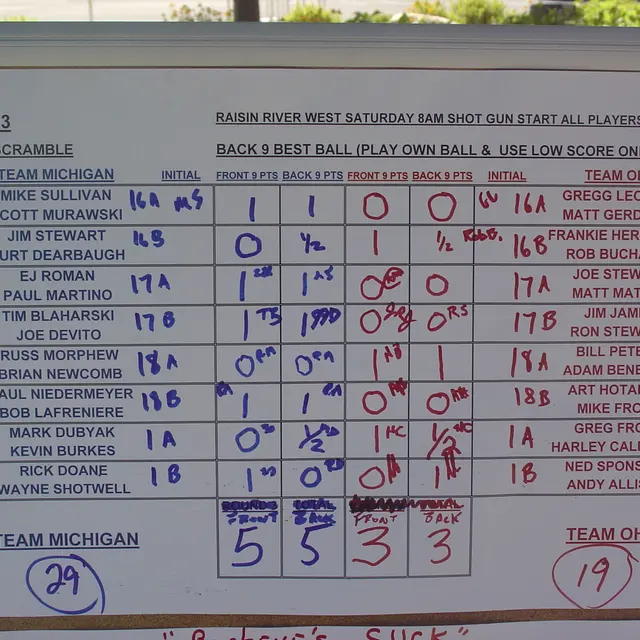 3 RAISIN RIVER WEST SATURDAY 8AM SHOT GUN START ALL PLAYERS
SCRAMBLE BACK 9 BEST BALL (PLAY OWN BALL & USE LOW SCORE ON
TEAM MICHIGAN INITIAL FRONT 9 PTS BACK 9 PTS FRONT 9 PTS BACK 9 PTS INITIAL TEAM O
MIKE SULLIVAN GREGG LEO
16A MS 1 1 0 0 GV 16A
COTT MURAWSKI MATT GERD
JIM STEWART FRANKIE HER
16B 0 1/2 1 1/2 RobB. 16B
URT DEARBAUGH ROB BUCH
EJ ROMAN JOE STEW
17A 1 1 0 0 17A
PAUL MARTINO MATT MAT
TIM BLAHARSKI JIM JAM
17B 1 TB 1 0 0 RS 17B
JOE DEVITO RON STEW
RUSS MORPHEW BILL PETE
18A 0 0 1 1 18A
BRIAN NEWCOMB ADAM BENE
AUL NIEDERMEYER ART HOTA
18B 1 1 0 0 18B
BOB LAFRENIERE MIKE FRO
MARK DUBYAK GREG FRO
1A 0 1/2 1 HC 1/2 HC 1A
KEVIN BURKES HARLEY CAL
RICK DOANE NED SPONS
1B 1 0 RD 0 1 1B
WAYNE SHOTWELL ANDY ALLIS
ROUNDS TOTAL TOTAL
FRONT BACK FRONT BACK
TEAM MICHIGAN 5 5 3 3 TEAM OH
29 19
"Buckeye's SUCK"